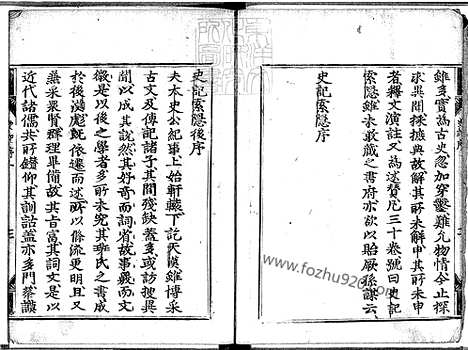 雖多實爲古史忽加穿鑿難允物情今止探
求異聞採摭典故解其所未解申其所未申
者釋文演註又爲述贊凡三十卷號曰史記
索隱雖未敢藏之書府亦欲以貽厥孫謀云
史記索隱序
史記索隱後序
夫太史公紀事上始軒轅下訖天漢雖博采
古文及傳記諸子其間殘缺蓋多或旁搜異
聞以成其說然其人好奇而詞省故事覈而文
微是以後之學者多所未究其班氏之書成
於後漢彪既後遷而述所以條流更明且又
兼采衆賢羣理畢備故其旨富其詞文是以
近代諸儒共所鑽仰其訓詁蓋亦多門蔡謨
www.fozhu920.com